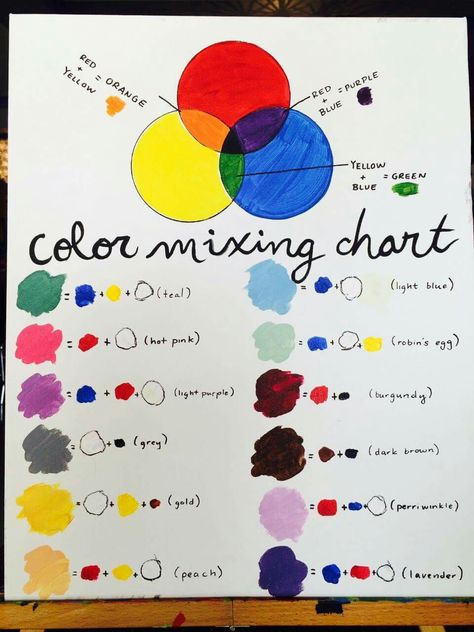 RED
+
YELLOW
= ORANGE
RED
+
BLUE
= PURPLE
YELLOW
+
BLUE
= GREEN
color mixing chart
= + + (teal)
= + (light blue)
= + (hot pink)
= + + (robin's egg)
= + + (light purple)
= + (burgundy)
= + (grey)
= + (dark brown)
= + + (gold)
= + + (perriwinkle)
= + + (peach)
= + + (lavender)